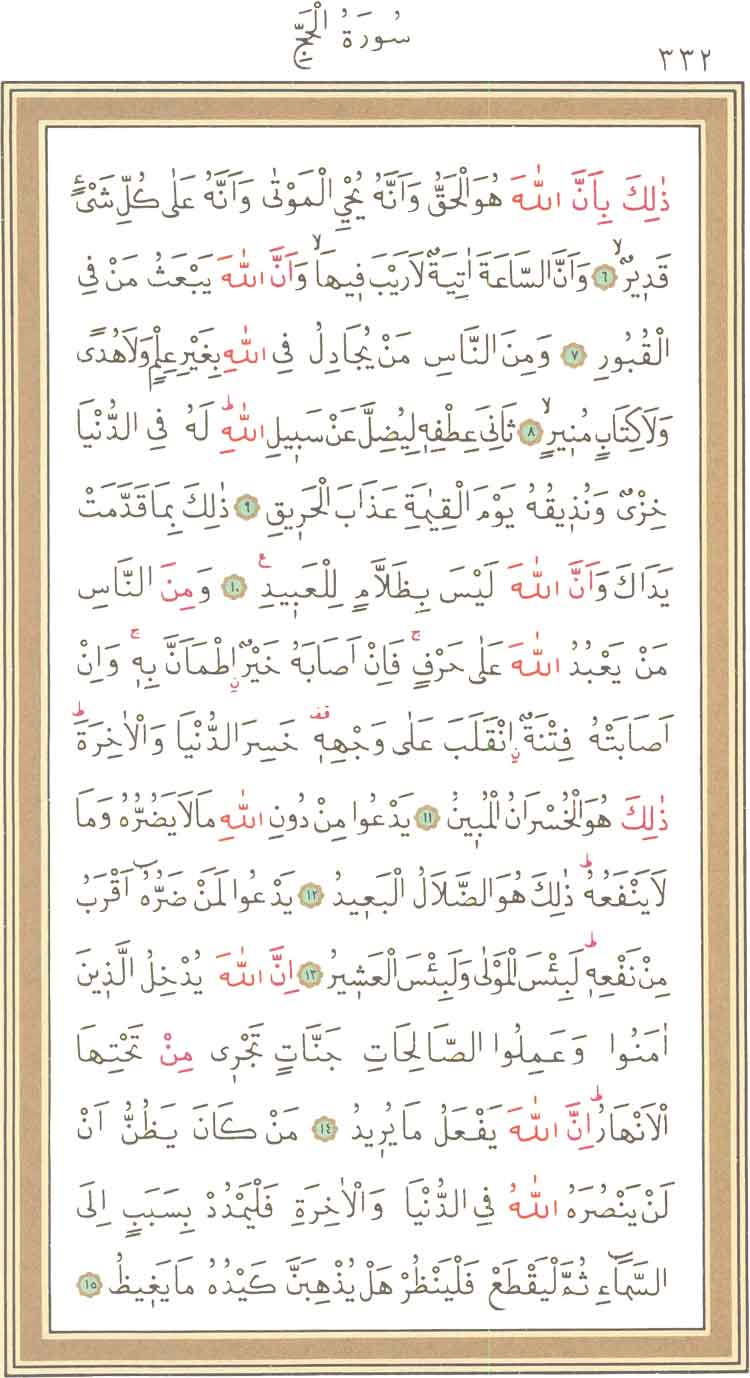 سُورَةُ الْحَجِّ
٣٣٢
ذٰلِكَ بِاَنَّ اللّٰهَ هُوَ الْحَقُّ وَاَنَّهُ يُحْيِ الْمَوْتٰى وَاَنَّهُ عَلٰى كُلِّ شَىْءٍ
قَد۪يرٌۙ ﴿٦﴾ وَاَنَّ السَّاعَةَ اٰتِيَةٌ لَا رَيْبَ ف۪يهَاۙ وَاَنَّ اللّٰهَ يَبْعَثُ مَنْ فِى
الْقُبُورِ ﴿٧﴾ وَمِنَ النَّاسِ مَنْ يُجَادِلُ فِى اللّٰهِ بِغَيْرِ عِلْمٍ وَلَا هُدًى
وَلَا كِتَابٍ مُن۪يرٍۙ ﴿٨﴾ ثَانِىَ عِطْفِه۪ لِيُضِلَّ عَنْ سَب۪يلِ اللّٰهِؕ لَهُ فِى الدُّنْيَا
خِزْىٌ وَنُذ۪يقُهُ يَوْمَ الْقِيٰمَةِ عَذَابَ الْحَر۪يقِ ﴿٩﴾ ذٰلِكَ بِمَا قَدَّمَتْ
يَدَاكَ وَاَنَّ اللّٰهَ لَيْسَ بِظَلَّامٍ لِلْعَب۪يدِ ع ﴿١٠﴾ وَمِنَ النَّاسِ
مَنْ يَعْبُدُ اللّٰهَ عَلٰى حَرْفٍۚ فَاِنْ اَصَابَهُ خَيْرٌ ۨاطْمَاَنَّ بِه۪ۚ وَاِنْ
اَصَابَتْهُ فِتْنَةٌ ۨانْقَلَبَ عَلٰى وَجْهِه۪ قف خَسِرَ الدُّنْيَا وَالْاٰخِرَةَؕ
ذٰلِكَ هُوَ الْخُسْرَانُ الْمُب۪ينُ ﴿١١﴾ يَدْعُوا مِنْ دُونِ اللّٰهِ مَا لَا يَضُرُّهُ وَمَا
لَا يَنْفَعُهُؕ ذٰلِكَ هُوَ الضَّلَالُ الْبَع۪يدُ ﴿١٢﴾ يَدْعُوا لَمَنْ ضَرُّهُٓ اَقْرَبُ
مِنْ نَفْعِه۪ؕ لَبِئْسَ الْمَوْلٰى وَلَبِئْسَ الْعَش۪يرُ ﴿١٣﴾ اِنَّ اللّٰهَ يُدْخِلُ الَّذ۪ينَ
اٰمَنُوا وَعَمِلُوا الصَّالِحَاتِ جَنَّاتٍ تَجْر۪ى مِنْ تَحْتِهَا
الْاَنْهَارُؕ اِنَّ اللّٰهَ يَفْعَلُ مَا يُر۪يدُ ﴿١٤﴾ مَنْ كَانَ يَظُنُّ اَنْ
لَنْ يَنْصُرَهُ اللّٰهُ فِى الدُّنْيَا وَالْاٰخِرَةِ فَلْيَمْدُدْ بِسَبَبٍ اِلَى
السَّمَٓاءِ ثُمَّ لْيَقْطَعْ فَلْيَنْظُرْ هَلْ يُذْهِبَنَّ كَيْدُهُ مَا يَغ۪يظُ ﴿١٥﴾